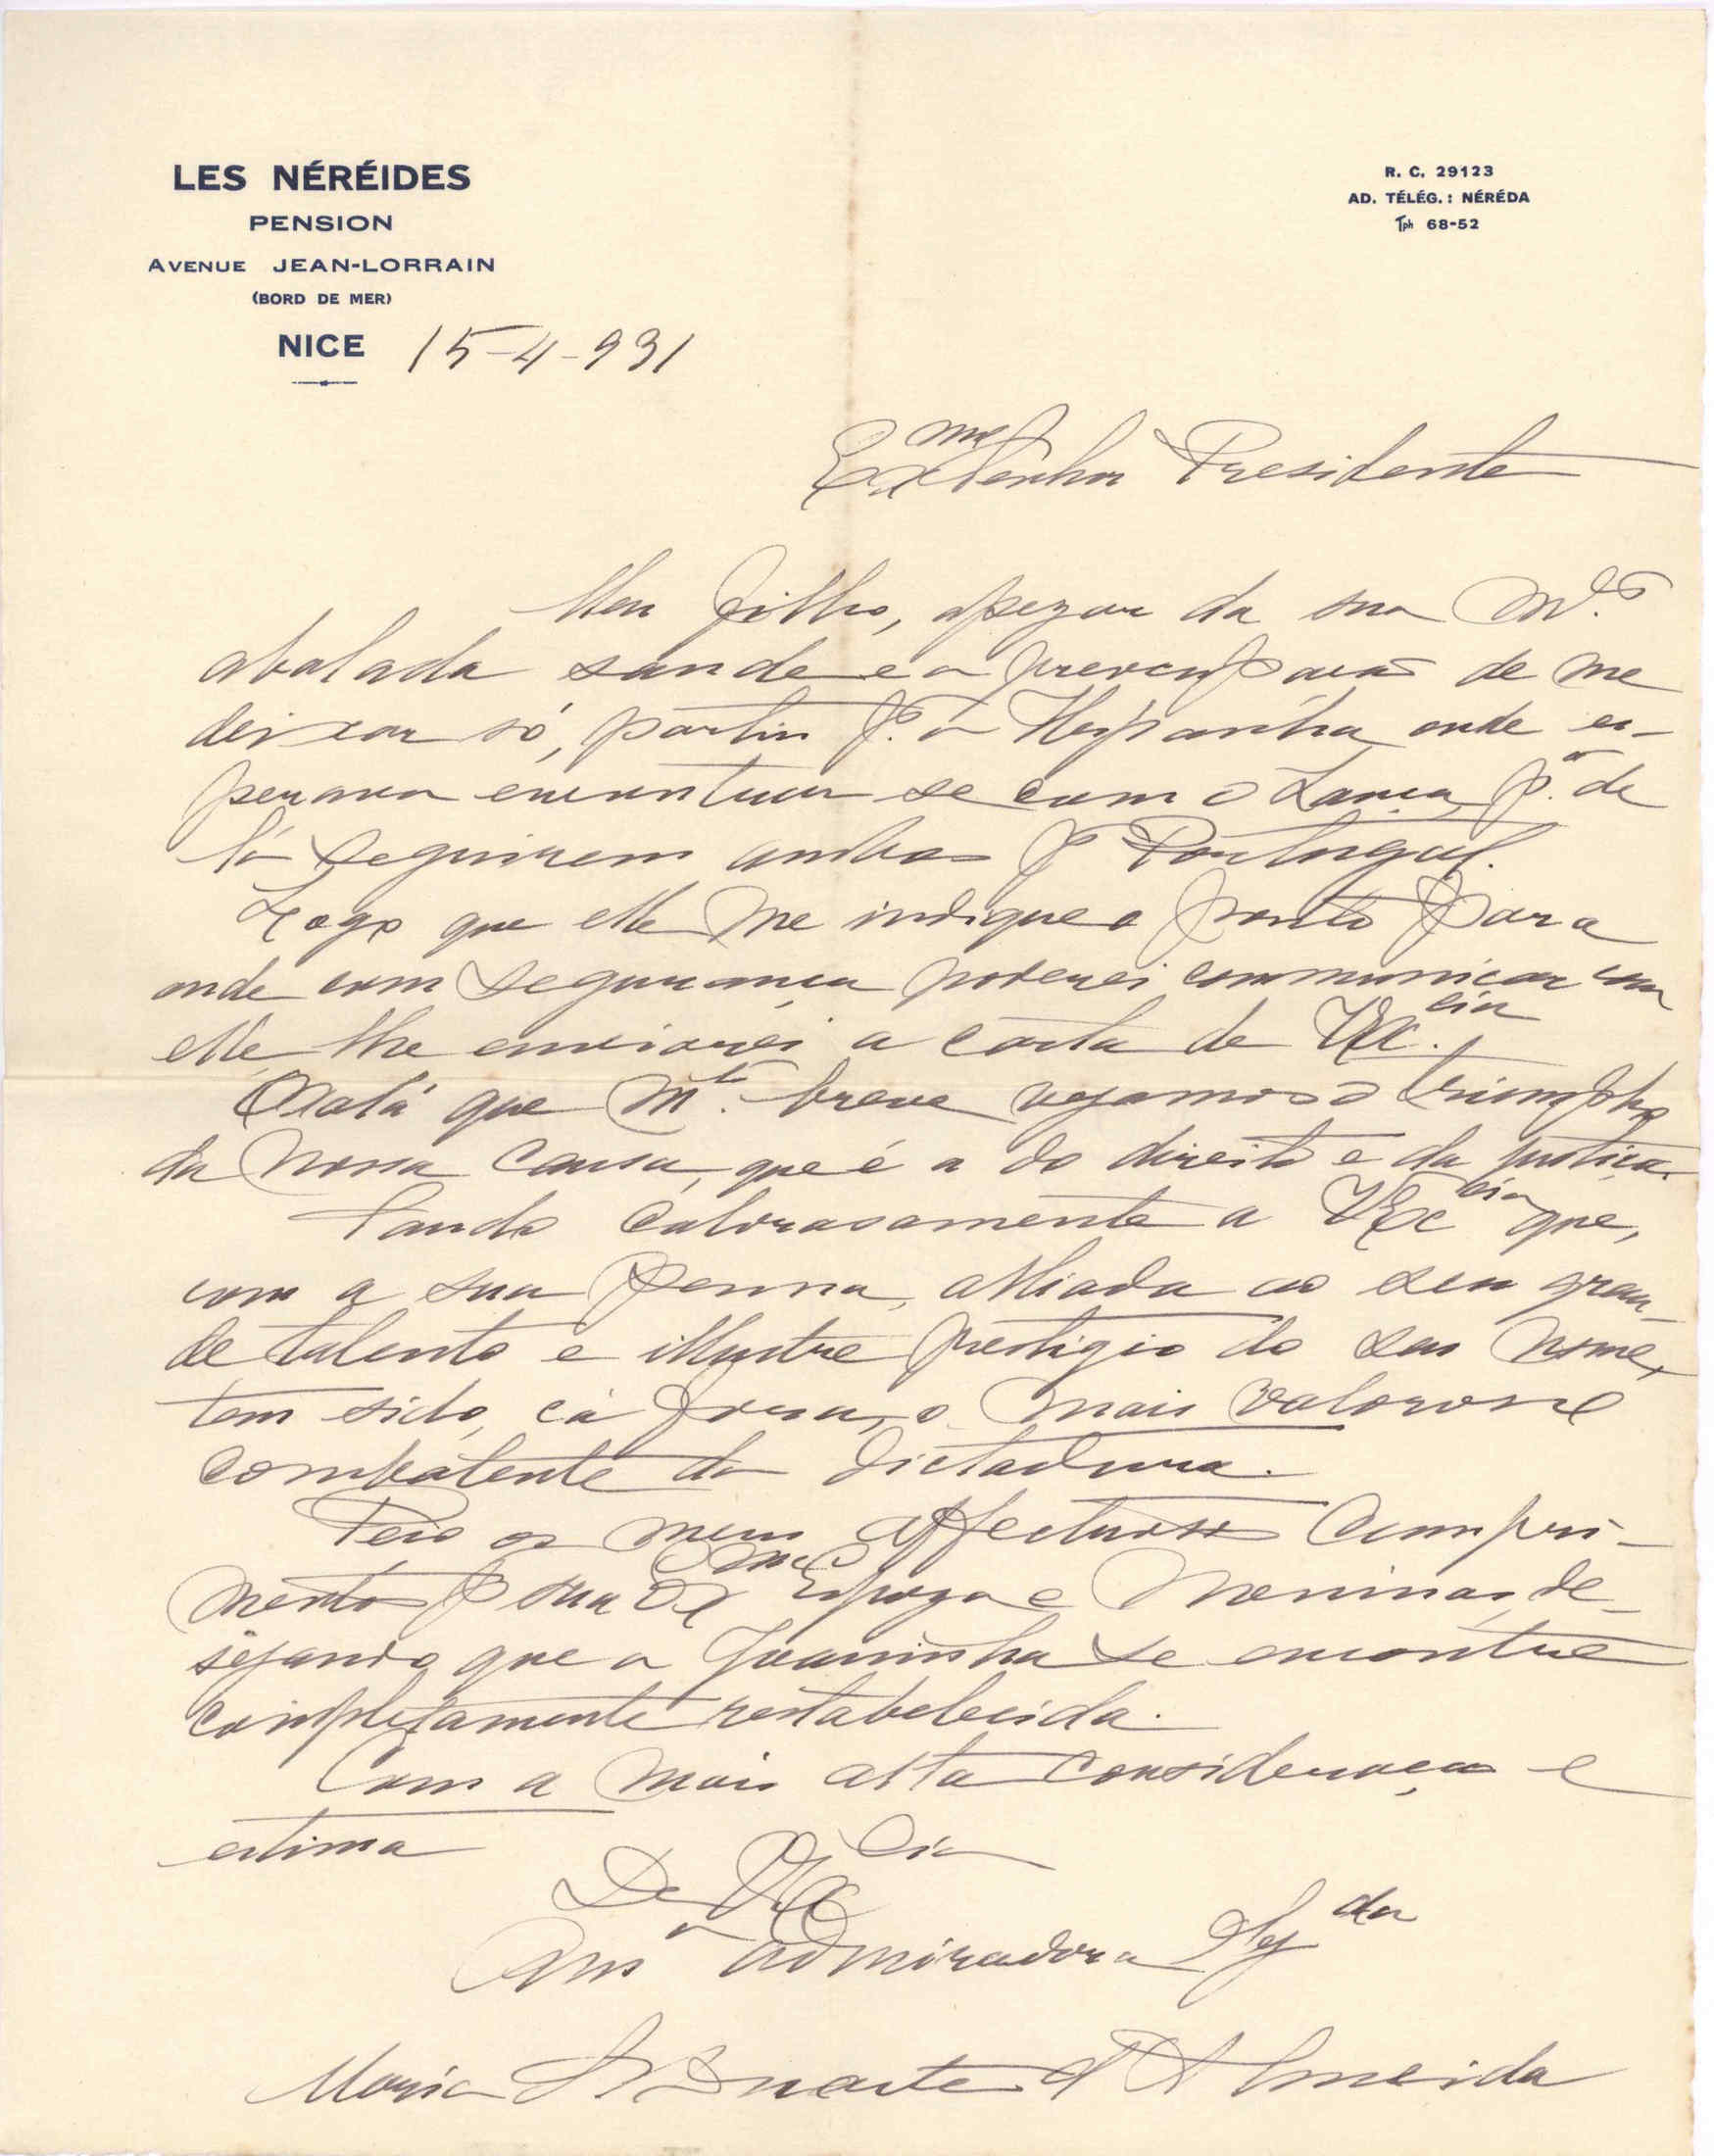 LES NÉRÉIDES
PENSION
AVENUE JEAN-LORRAIN
(BORD DE MER)
NICE 15-4-931
R. C. 29123
AD. TÉLÉG. : NÉRÉDA
Tph 68-52
Exmo Senhor Presidente
Meu filho, apezar da sua m.to
abalada saude e a preocupação de me
deixar só, partiu p.a a Hespanha onde es-
perava encontrar se com o Lança, p.a de
lá seguirem ambos p.a Portugal.
Logo que elle me indique o ponto para
onde com segurança poderei communicar com
elle, lhe enviarei a carta de V Ex.cia
Oxalá que m.to breve vejamos o triumpho
da nossa causa, que é a do direito e da justiça.
Saudo calorosamente a V Excia que,
com a sua penna, alliada ao seu gran-
de talento e illustre prestigio do seu nome,
tem sido, cá fora, o mais valoroso
combatente da Dictadura.
Peço os meus affectuosos cumpri-
mentos p.a sua Exma Espoza e Meninas, de-
sejando que a Joaninha se encontre
completamente restabelecida.
Com a mais alta consideração e
estima
De V Excia
admiradora
Maria Duarte d'Almeida